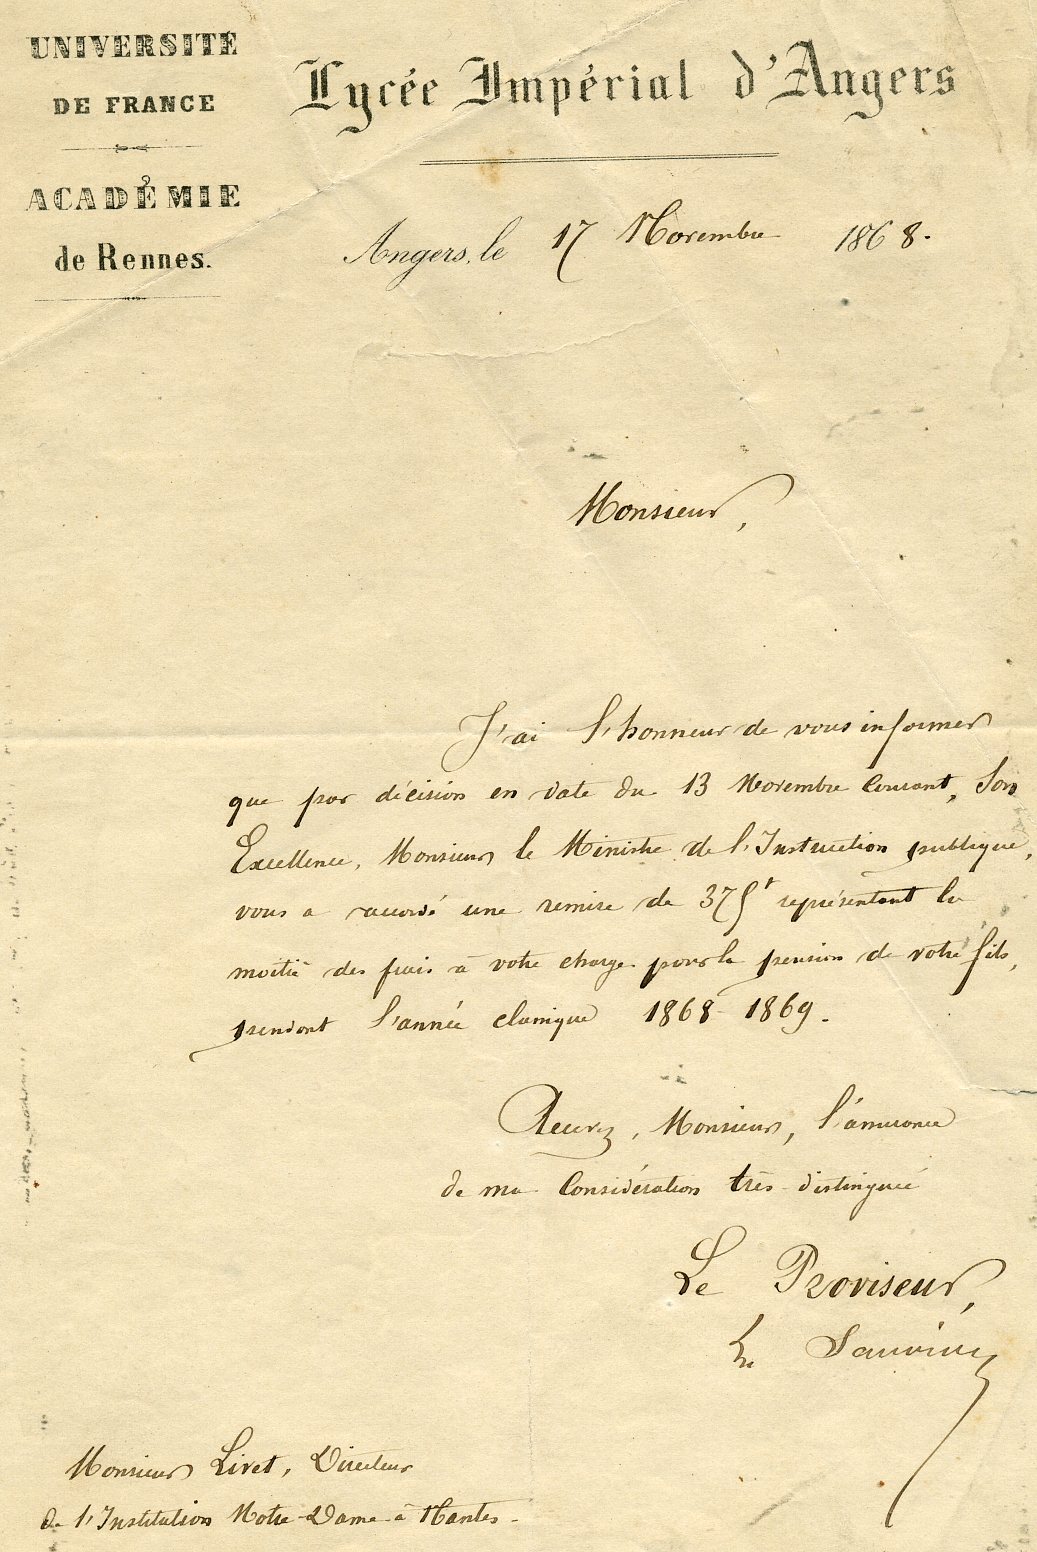 UNIVERSITÉ
DE FRANCE
ACADÉMIE
de Rennes.
Lycée Impérial d'Angers
Angers, le 17 Novembre 1868.
Monsieur,
J'ai l'honneur de vous informer
que par décision en date du 13 Novembre Courant, Son
Excellence, Monsieur le Ministre de l'Instruction publique,
vous a accordé une remise de 375f représentant la
moitié des frais à votre charge pour la pension de votre fils,
pendant l'année classique 1868-1869.
Agréez, Monsieur, l'assurance
de ma Considération très distinguée
Le Proviseur,
Monsieur Livet, Directeur
de l'Institution Notre-Dame à Nantes.